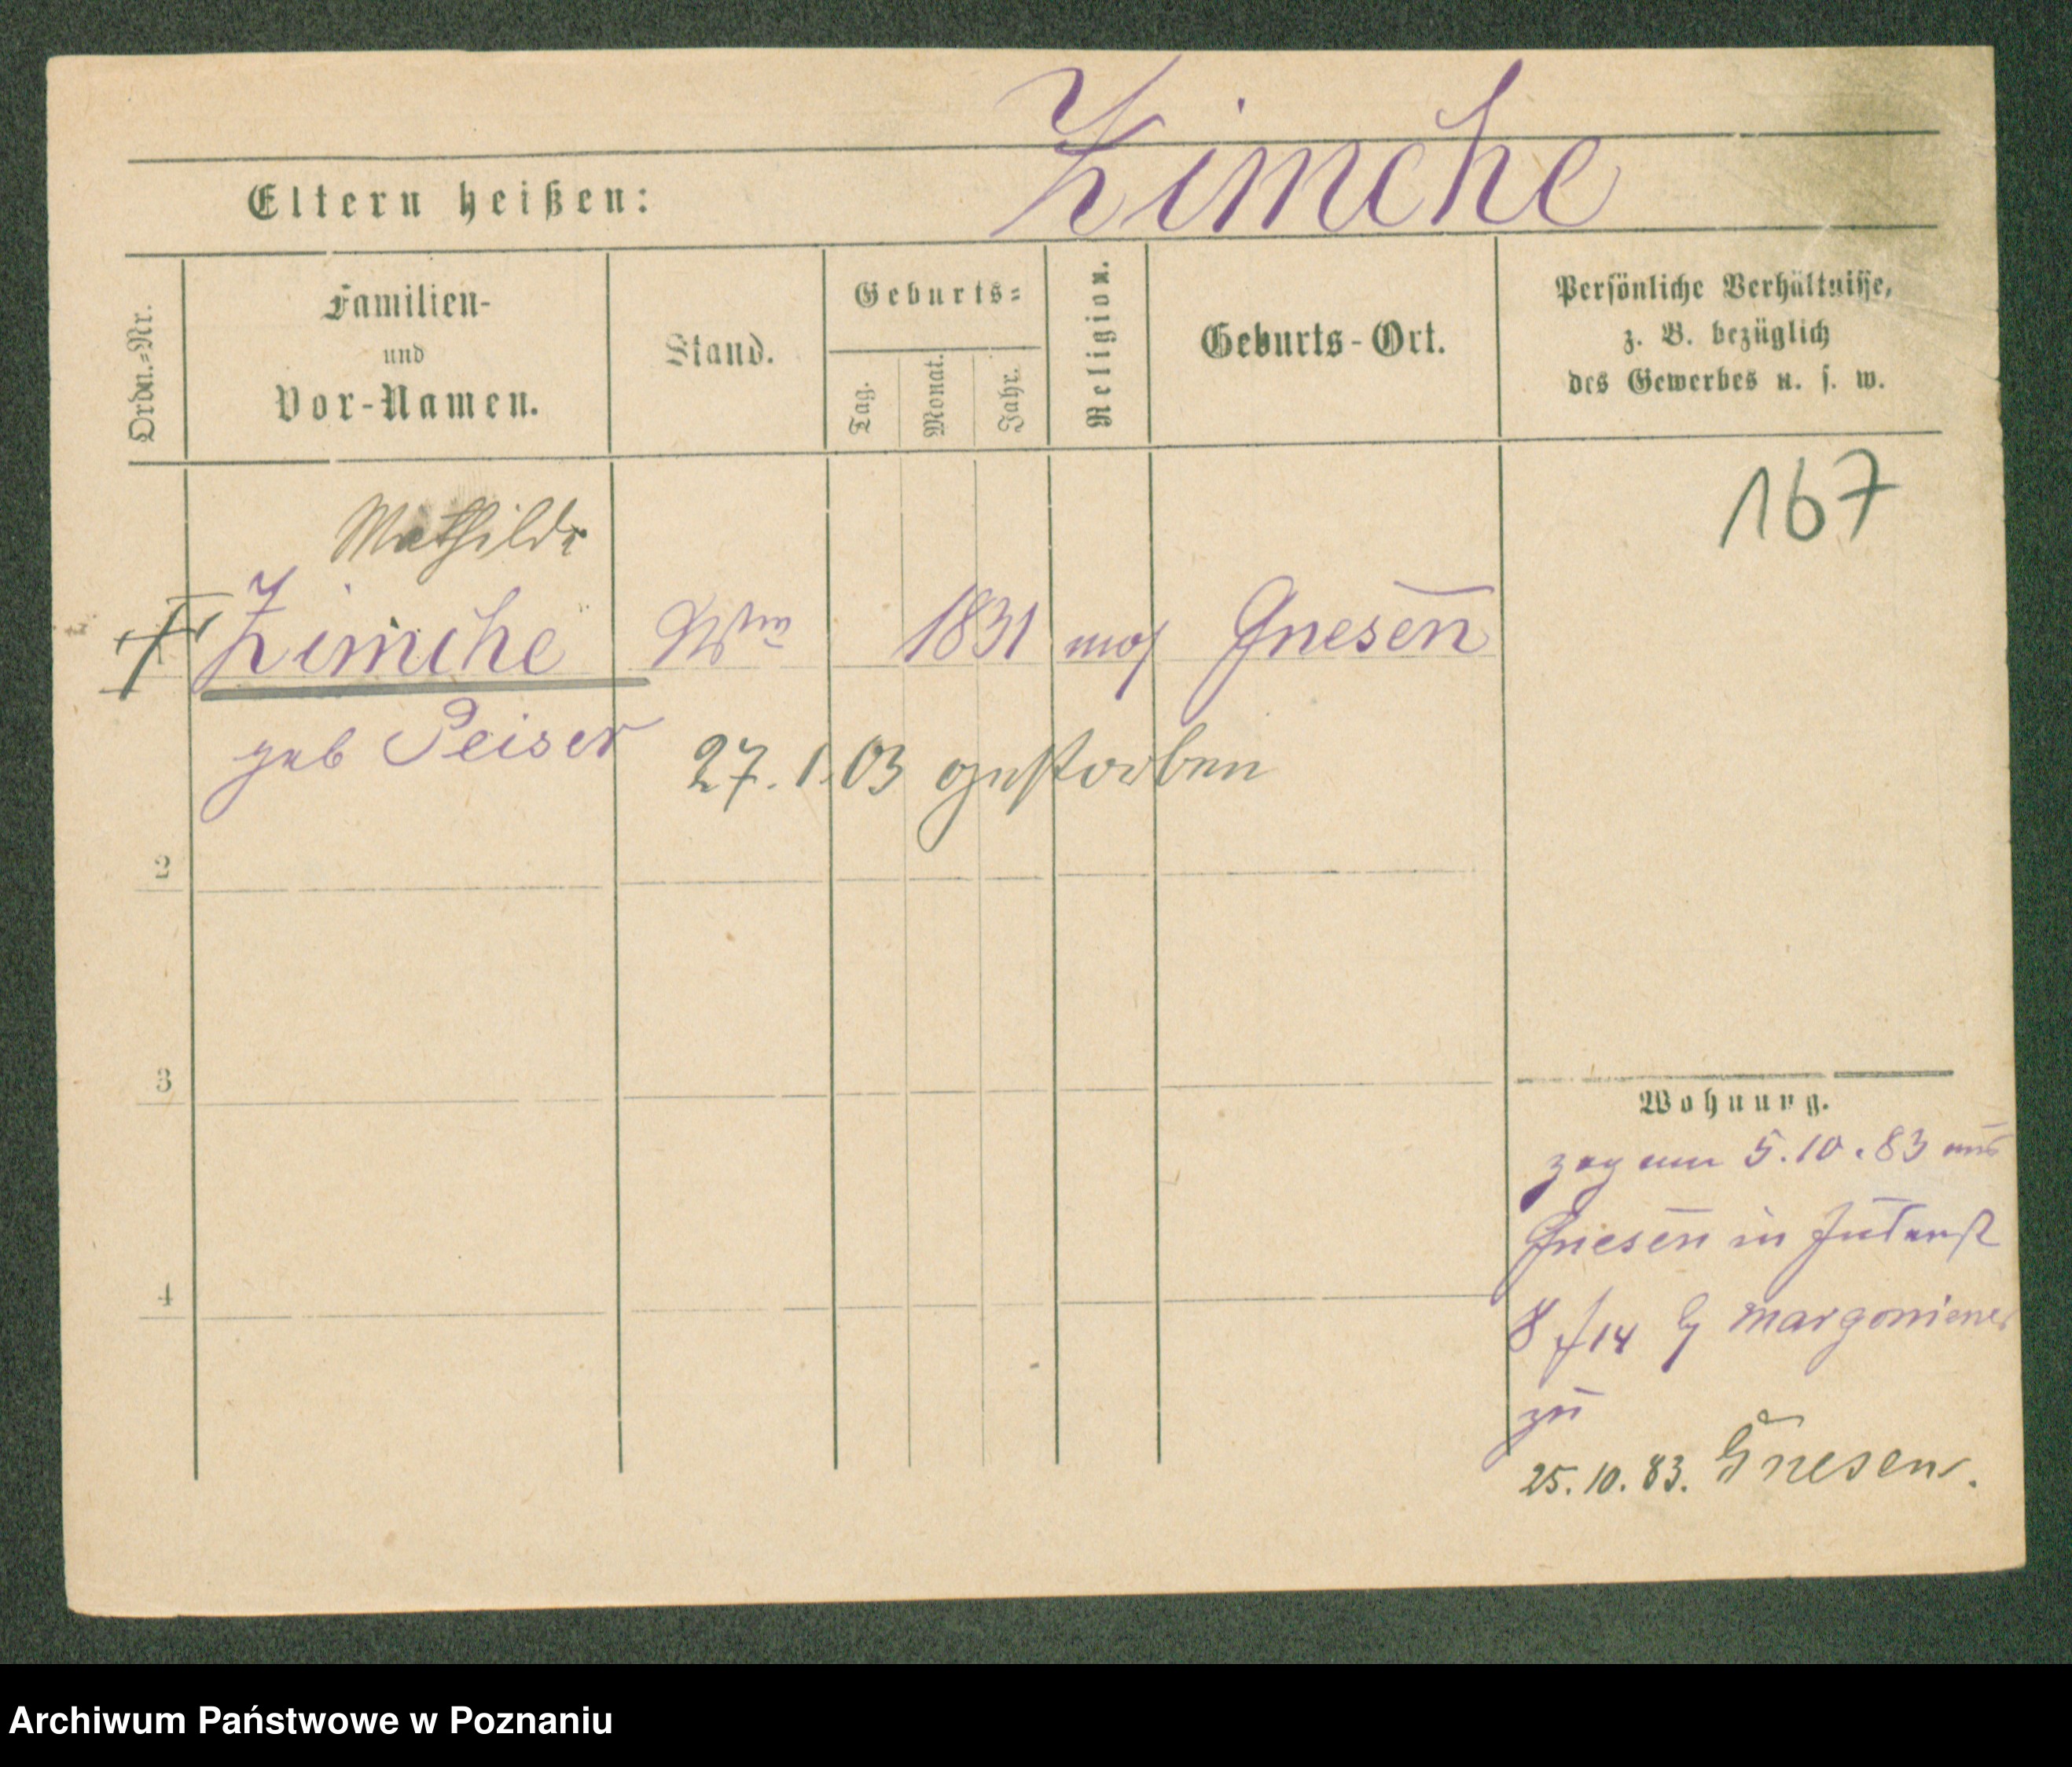 Zimche
Eltern heißen:
Ordn.=Nr.
Familien-
und
Vor-Namen.
Stand.
Geburts=
Tag.
Monat.
Jahr.
Religion.
Geburts-Ort.
Persönliche Verhältnisse,
z. B. bezüglich
des Gewerbes u. s. w.
167
Mathilde
Zimche Wwe 1831 mos Gnesen
geb Peiser
27.1.03 gestorben
2
3
4
Wohnung.
zog am 5.10.83 aus
Gnesen in Judenst
8 f14 Margoniner
zu
25.10.83. Gnesen.
Archiwum Państwowe w Poznaniu